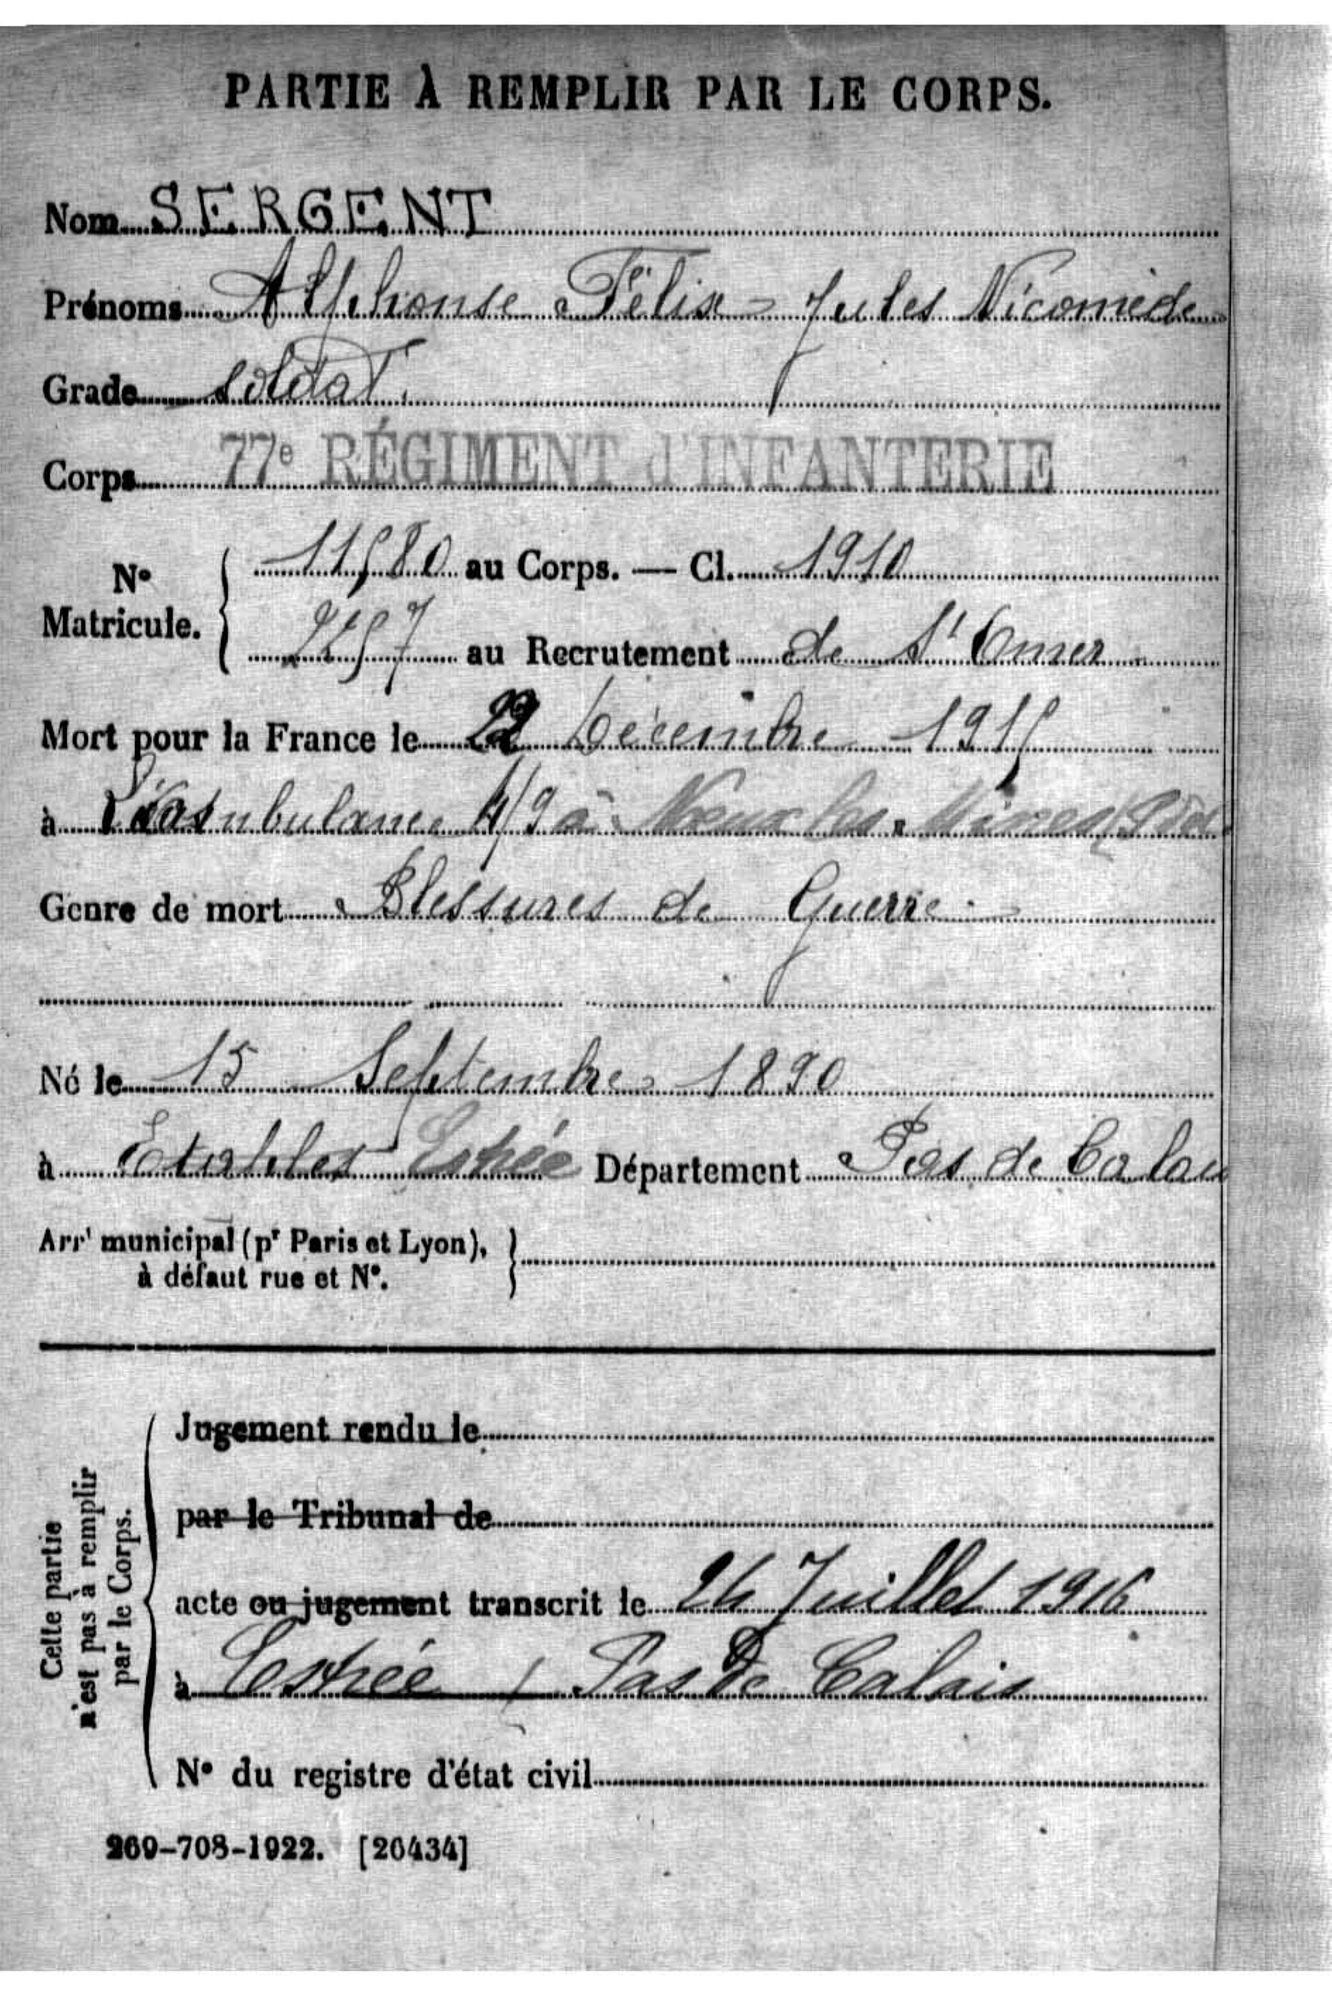 PARTIE À REMPLIR PAR LE CORPS.
Nom SERGENT
Prénoms Alphonse Félix Jules Nicomède
Grade soldat
Corps 77e RÉGIMENT d'INFANTERIE
No Matricule. { 11580 au Corps. — Cl. 1910
2257 au Recrutement de St Omer
Mort pour la France le 22 Décembre 1915
à l'Ambulance 4/9 à Noeux les Mines (P de
Genre de mort Blessures de Guerre
Né le 15 Septembre 1890
à Etaples Estrée Département Pas de Calais
Arrt municipal (pr Paris et Lyon), }
à défaut rue et No.
Cette partie
n'est pas à remplir
par le Corps.
Jugement rendu le
par le Tribunal de
acte ou jugement transcrit le 24 Juillet 1916
à Estrée / Pas De Calais
No du registre d'état civil
269-708-1922. [26434]